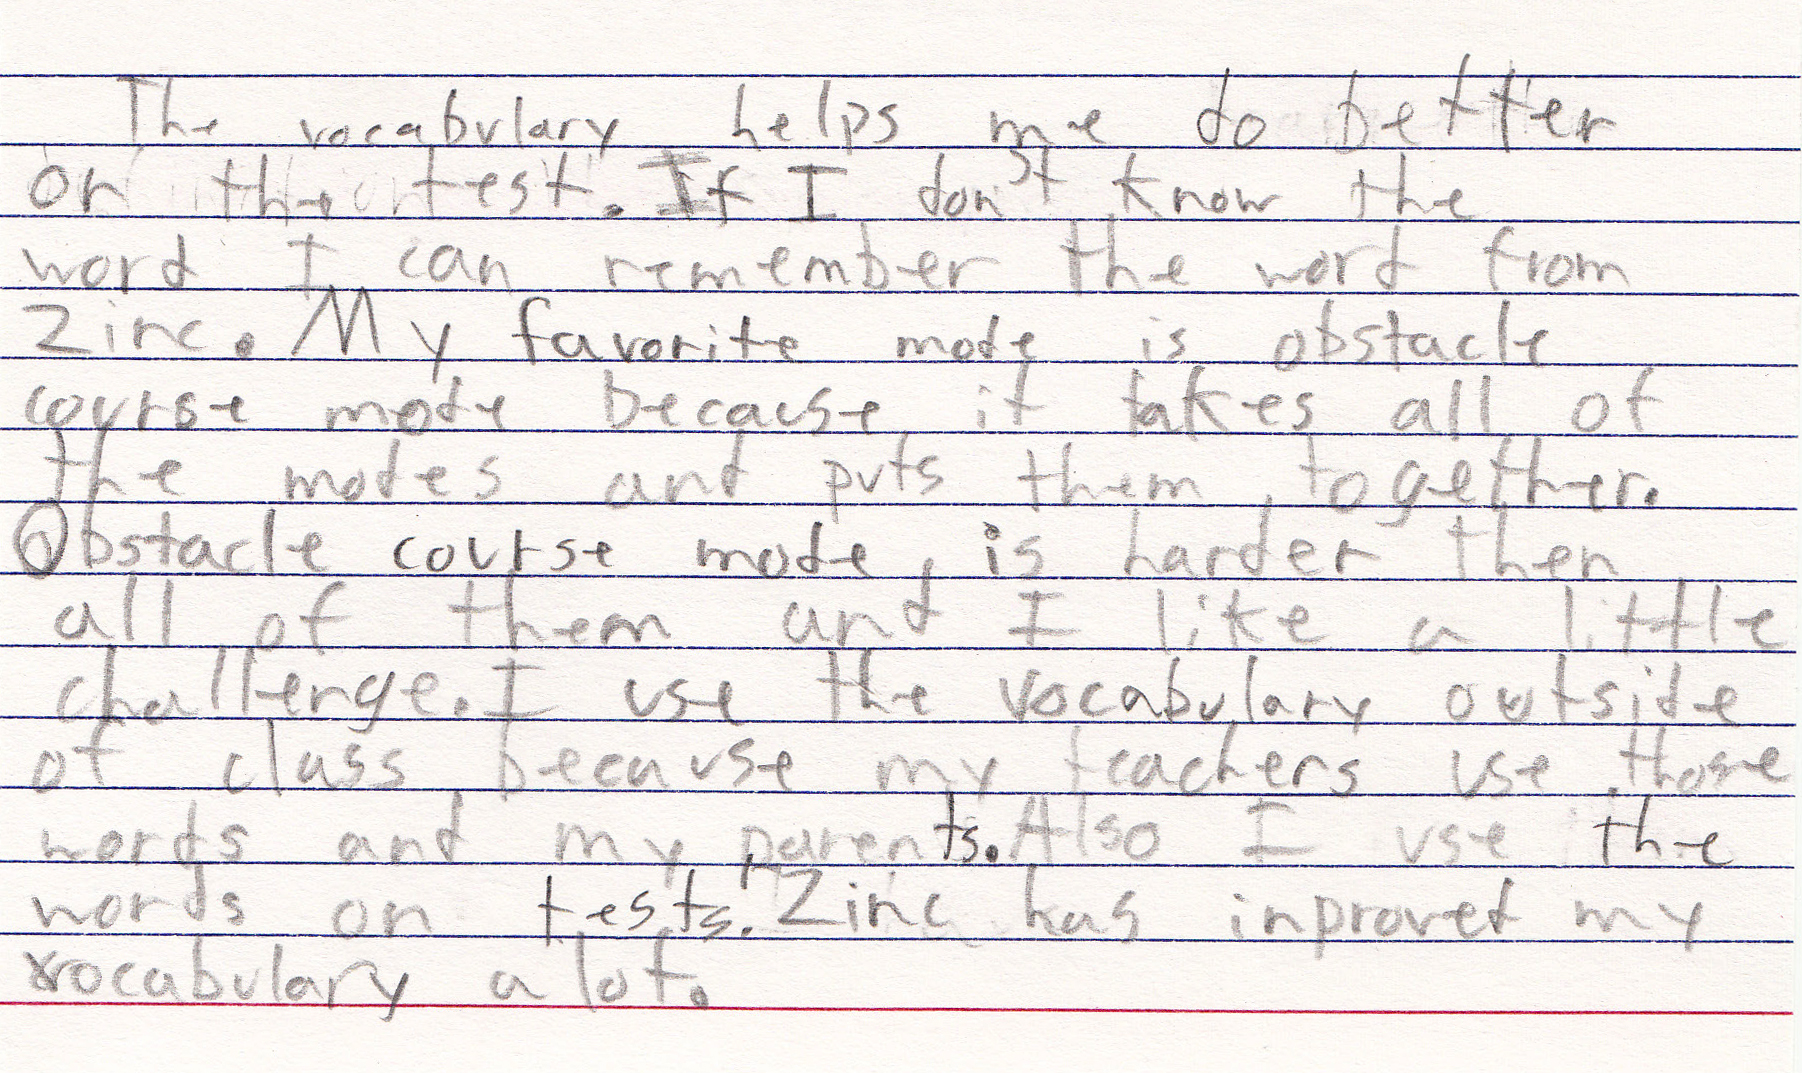 The vocabulary helps me do better
on the test. If I don't know the
word I can remember the word from
Zinc. My favorite mode is obstacle
course mode because it takes all of
the modes and puts them together.
Obstacle course mode, is harder then
all of them and I like a little
challenge. I use the vocabulary outside
of class because my teachers use those
words and my parents. Also I use the
words on tests. Zinc has inproved my
vocabulary a lot.